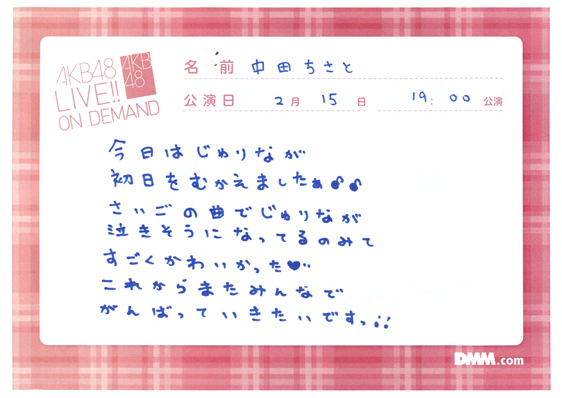 AKB48
LIVE!!
ON DEMAND
AKB
48
名前 中田ちさと
公演日 2月 15日 19:00公演
今日はじゅりなが
初日をむかえましたぁ♪♪
さいごの曲でじゅりなが
泣きそうになってるのみて
すごくかわいかった♥
これからまたみんなで
がんばっていきたいですっ!!
DMM.com